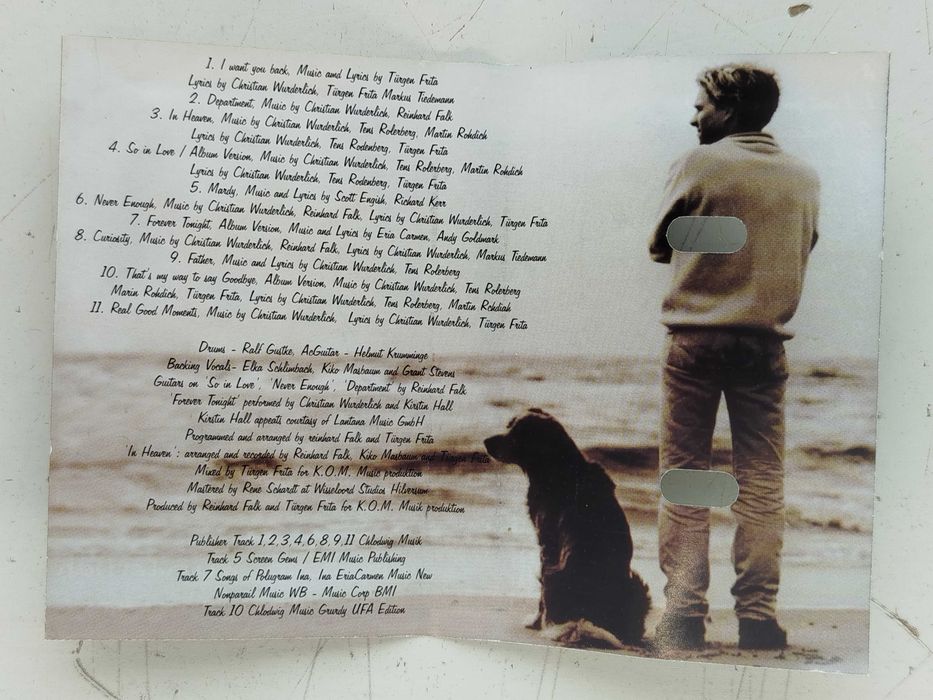 1. I want you back, Music and Lyrics by Türgen Frita
Lyrics by Christian Wurderlich, Türgen Frita Markus Tiedemann
2. Department, Music by Christian Wurderlich, Reinhard Falk
3. In Heaven, Music by Christian Wurderlich, Tens Rolerberg, Martin Rohdich
Lyrics by Christian Wurderlich, Tens Rodenberg, Türgen Frita
4. So in Love / Album Version, Music by Christian Wurderlich, Tens Rolerberg, Martin Rohdich
Lyrics by Christian Wurderlich, Tens Rodenberg, Türgen Frita
5. Mardy, Music and Lyrics by Scott Engish, Richard Kerr
6. Never Enough, Music by Christian Wurderlich, Reinhard Falk, Lyrics by Christian Wurderlich, Türgen Frita
7. Forever Tonight, Album Version, Music and Lyrics by Eria Carmen, Andy Goldmark
8. Curiosity, Music by Christian Wurderlich, Reinhard Falk, Lyrics by Christian Wurderlich, Markus Tiedemann
9. Father, Music and Lyrics by Christian Wurderlich, Tens Rolerberg
10. That's my way to say Goodbye, Album Version, Music by Christian Wurderlich, Tens Rolerberg
Marin Rohdich, Türgen Frita, Lyrics by Christian Wurderlich, Tens Rolerberg, Martin Rchdiah
11. Real Good Moments, Music by Christian Wurderlich, Lyrics by Christian Wurderlich, Türgen Frita
Drums - Ralf Gustke, AcGuitar - Helmut Krumminge
Backing Vocals- Elka Schlimbach, Kiko Masbaum and Grant Stevens
Guitars on 'So in Love', 'Never Enough', 'Department' by Reinhard Falk
'Forever Tonight' performed by Christian Wurderlich and Kirstin Hall
Kirstin Hall appeats courtesy of Lantana Music GmbH
Programmed and arranged by reinhard Falk and Türgen Frita
'In Heaven': arranged and recorded by Reinhard Falk, Kiko Masbaum and Türgen Frita
Mixed by Türgen Frita for K.O.M. Music produktion
Mastered by Rene Schardt at Wisseloord Studios Hilversum
Produced by Reinhard Falk and Türgen Frita for K.O.M. Musik produktion
Publisher Track 1,2,3,4,6,8,9,11 Chlodwig Musik
Track 5 Screen Gems / EMI Music Publishing
Track 7 Songs of Polugram Ina, Ina EriaCarmen Music New
Nonparail Music WB - Music Corp BMI
Track 10 Chlodwig Music Grurdy UFA Edition